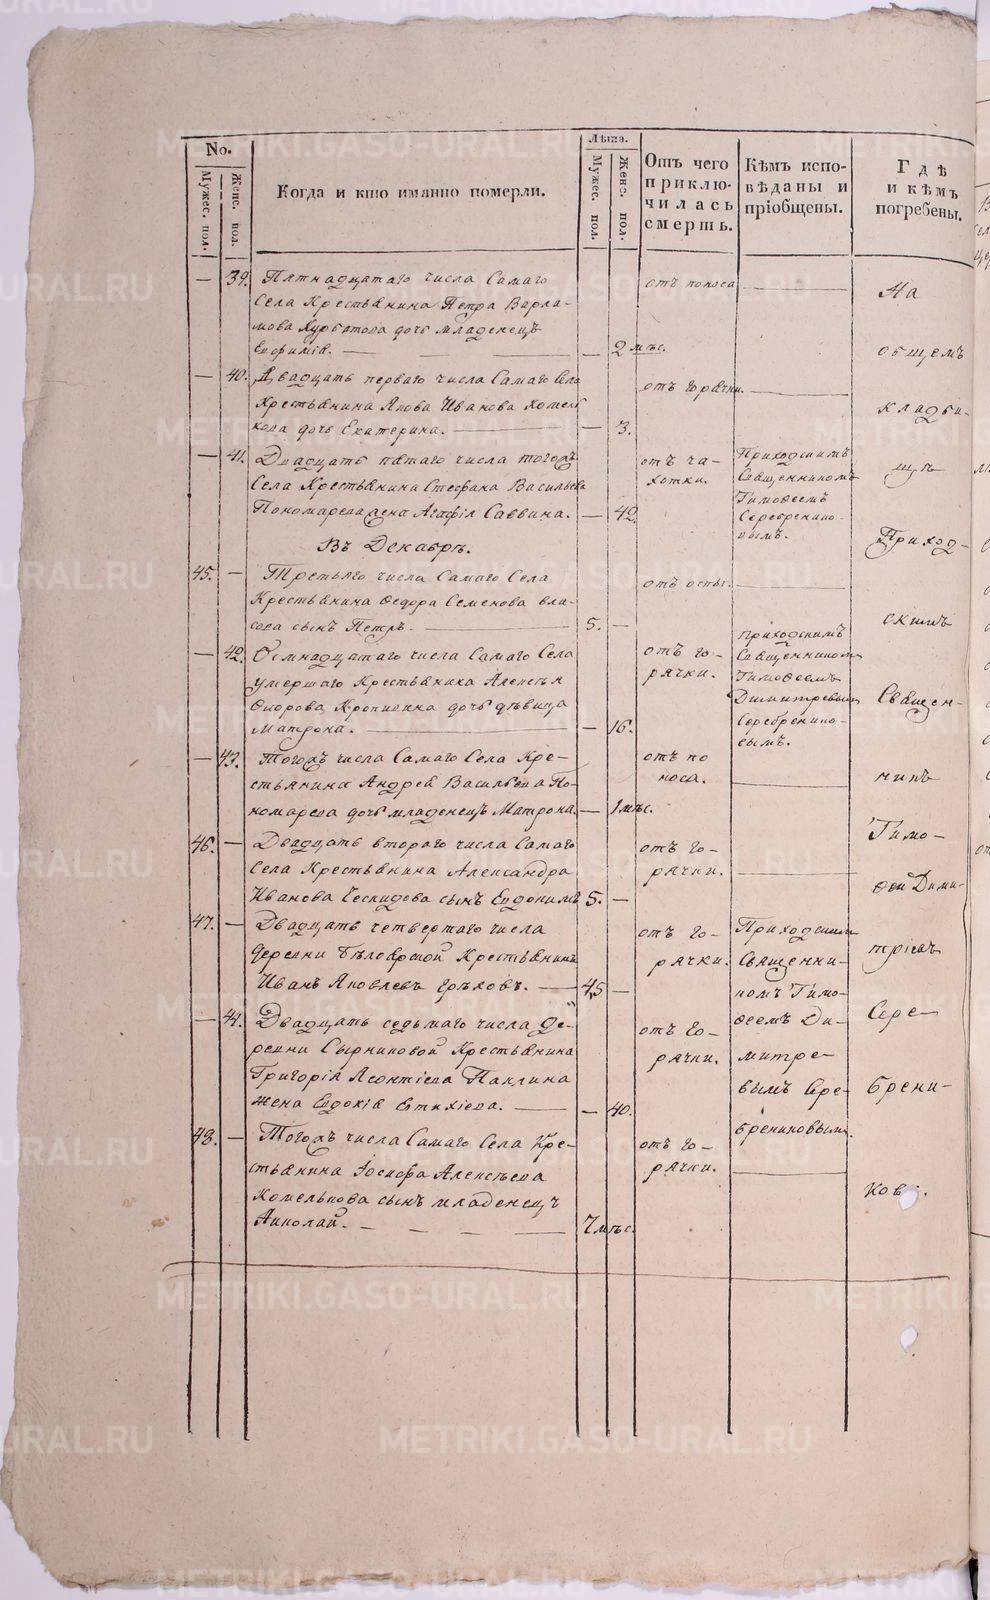 No.
Мужес. пол.
Женс. пол.
Когда и кто имянно померли.
Лѣта.
Мужес. пол.
Женс. пол.
Отъ чего
приклю-
чилась
смерть.
Кѣмъ испо-
вѣданы и
пріобщены.
Гдѣ
и кѣмъ
погребены.
— 39. Пятнадцатаго числа Самаго
Села Крестьянина Петра Варла-
мова Курбатова дочь младенецъ
Евфимія. — — 2 мѣс.
отъ поноса
— 40. Двадцать перваго числа Самаго Села
Крестьянина Якова Иванова Комель
кова дочь Екатерина. — — 3.
отъ горячки.
— 41. Двадцать пятаго числа тогожъ
Села Крестьянина Стефана Васильева
Пономарева жена Агафія Саввина. — 42.
отъ ча-
хотки.
Приходскимъ
Священникомъ
Тимофеемъ
Серебренико-
вымъ.
Въ Декабрѣ.
45. — Третьяго числа Самаго Села
Крестьянина Федора Семенова вла-
сова сынъ Петръ. — 5. —
отъ оспы.
— 42. Осмнадцатаго числа Самаго Села
умершаго Крестьянина Алексѣя
дочь дѣвица
Матрона. — — 16.
отъ го-
рячки.
Приходскимъ
Священникомъ
Тимофеемъ
Димитревымъ
Серебренико-
вымъ.
— 43. Тогожъ числа Самаго Села Кре-
стьянина Андрея Васильева По-
номарева дочь младенецъ Матрона. — 1 мѣс.
отъ по
носа.
46. — Двадцать втораго числа Самаго
Села Крестьянина Александра
Иванова сынъ Евдокимъ 5. —
отъ го-
рячки.
47. — Двадцать четвертаго числа
деревни Бѣлоярской Крестьянинъ
Иванъ Яковлевъ Грѣховъ. — 45 —
отъ го-
рячки.
Приходскимъ
Священни-
комъ Тимо-
феемъ Ди-
митре-
вымъ Сере-
брениковымъ.
— 44. Двадцать седьмаго числа де-
ревни Сырниковой Крестьянина
Григорія Леонтіева Паклина
жена Евдокія Евтихіева. — — 40.
отъ го-
рячки.
48. — Тогожъ числа Самаго Села Кре-
стьянина Іосифа Алексѣева
Комелькова сынъ младенецъ
Николай. — — — 7 мѣс.
отъ го-
рячки.
На
общемъ
кладби-
щѣ
Приход-
скимъ
Священ-
никъ
Тимо-
фей Дими-
тріевъ
Сере-
брени-
ковъ.
METRIKI.GASO-URAL.RU